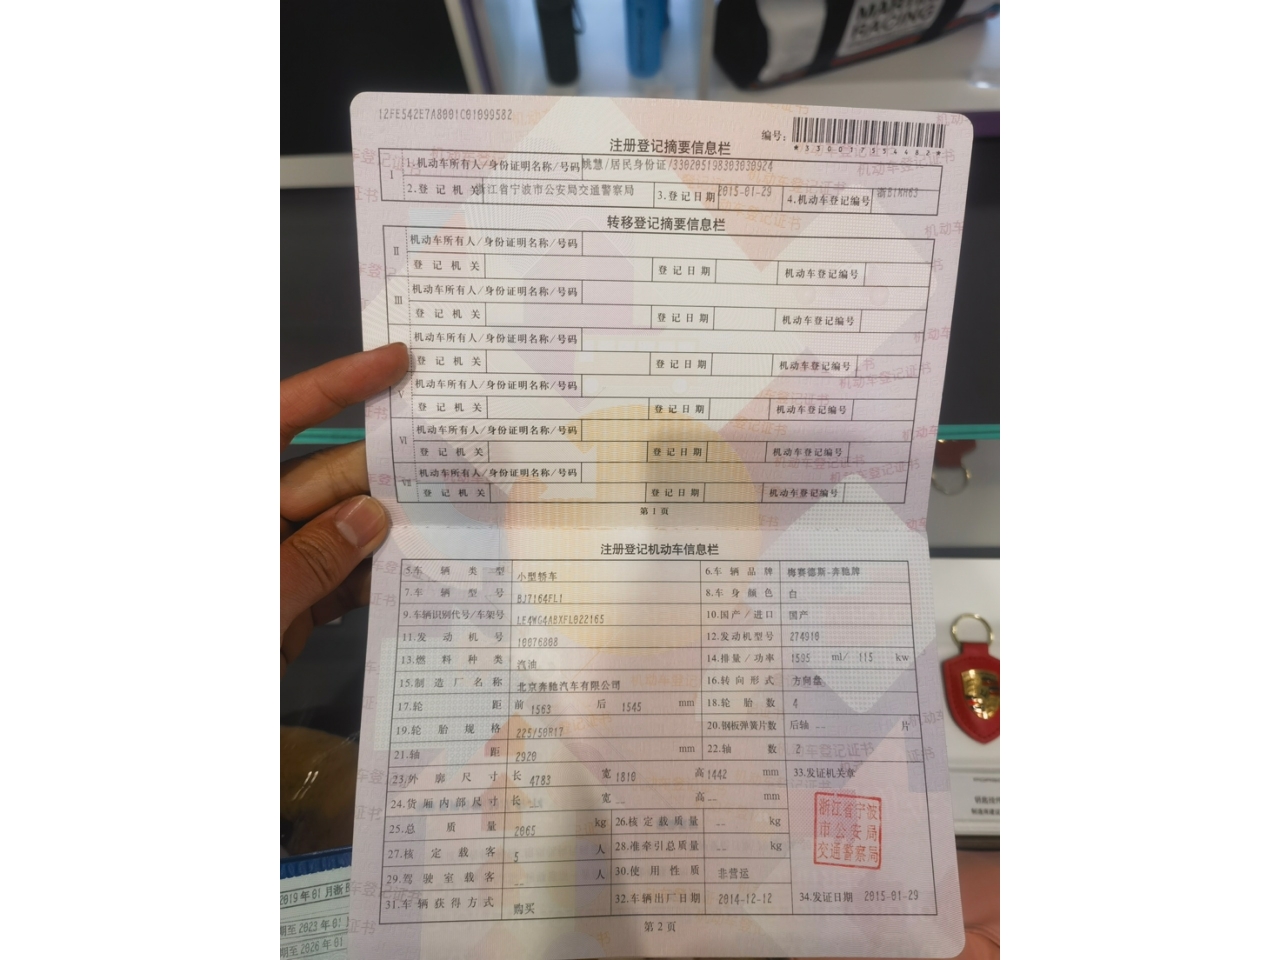 MARTINI
RACING
12FE542E7A8001C01099582
编号:
*330017554482*
注册登记摘要信息栏
I
1.机动车所有人/身份证明名称/号码 姚慧/居民身份证/330205198303030924
2.登记机关 浙江省宁波市公安局交通警察局 3.登记日期 2015-01-29 4.机动车登记编号
转移登记摘要信息栏
II 机动车所有人/身份证明名称/号码
登记机关 登记日期 机动车登记编号
III 机动车所有人/身份证明名称/号码
登记机关 登记日期 机动车登记编号
机动车所有人/身份证明名称/号码
登记机关 登记日期 机动车登记编号
V 机动车所有人/身份证明名称/号码
登记机关 登记日期 机动车登记编号
VI 机动车所有人/身份证明名称/号码
登记机关 登记日期 机动车登记编号
VII 机动车所有人/身份证明名称/号码
登记机关 登记日期 机动车登记编号
第1页
注册登记机动车信息栏
5.车辆类型 小型轿车 6.车辆品牌 梅赛德斯-奔驰牌
7.车辆型号 BJ7164FL1 8.车身颜色 白
9.车辆识别代号/车架号 LE4WG4ABXFL022165 10.国产/进口 国产
11.发动机号 10076808 12.发动机型号 274910
13.燃料种类 汽油 14.排量/功率 1595 ml/ 115 kw
15.制造厂名称 北京奔驰汽车有限公司 16.转向形式 方向盘
17.轮距 前 1563 后 1545 mm 18.轮胎数 4
19.轮胎规格 225/50R17 20.钢板弹簧片数 后轴 -- 片
21.轴距 2920 mm 22.轴数 2
23.外廓尺寸 长 4783 宽 1810 高 1442 mm 33.发证机关章
24.货厢内部尺寸 长 -- 宽 -- 高 -- mm
25.总质量 2065 kg 26.核定载质量 -- kg
27.核定载客 5 人 28.准牵引总质量 -- kg
29.驾驶室载客 -- 人 30.使用性质 非营运
31.车辆获得方式 购买 32.车辆出厂日期 2014-12-12 34.发证日期 2015-01-29
浙江省宁波
市公安局
交通警察局
第2页
2019年01月浙B
期至2023年01
期至2026年01